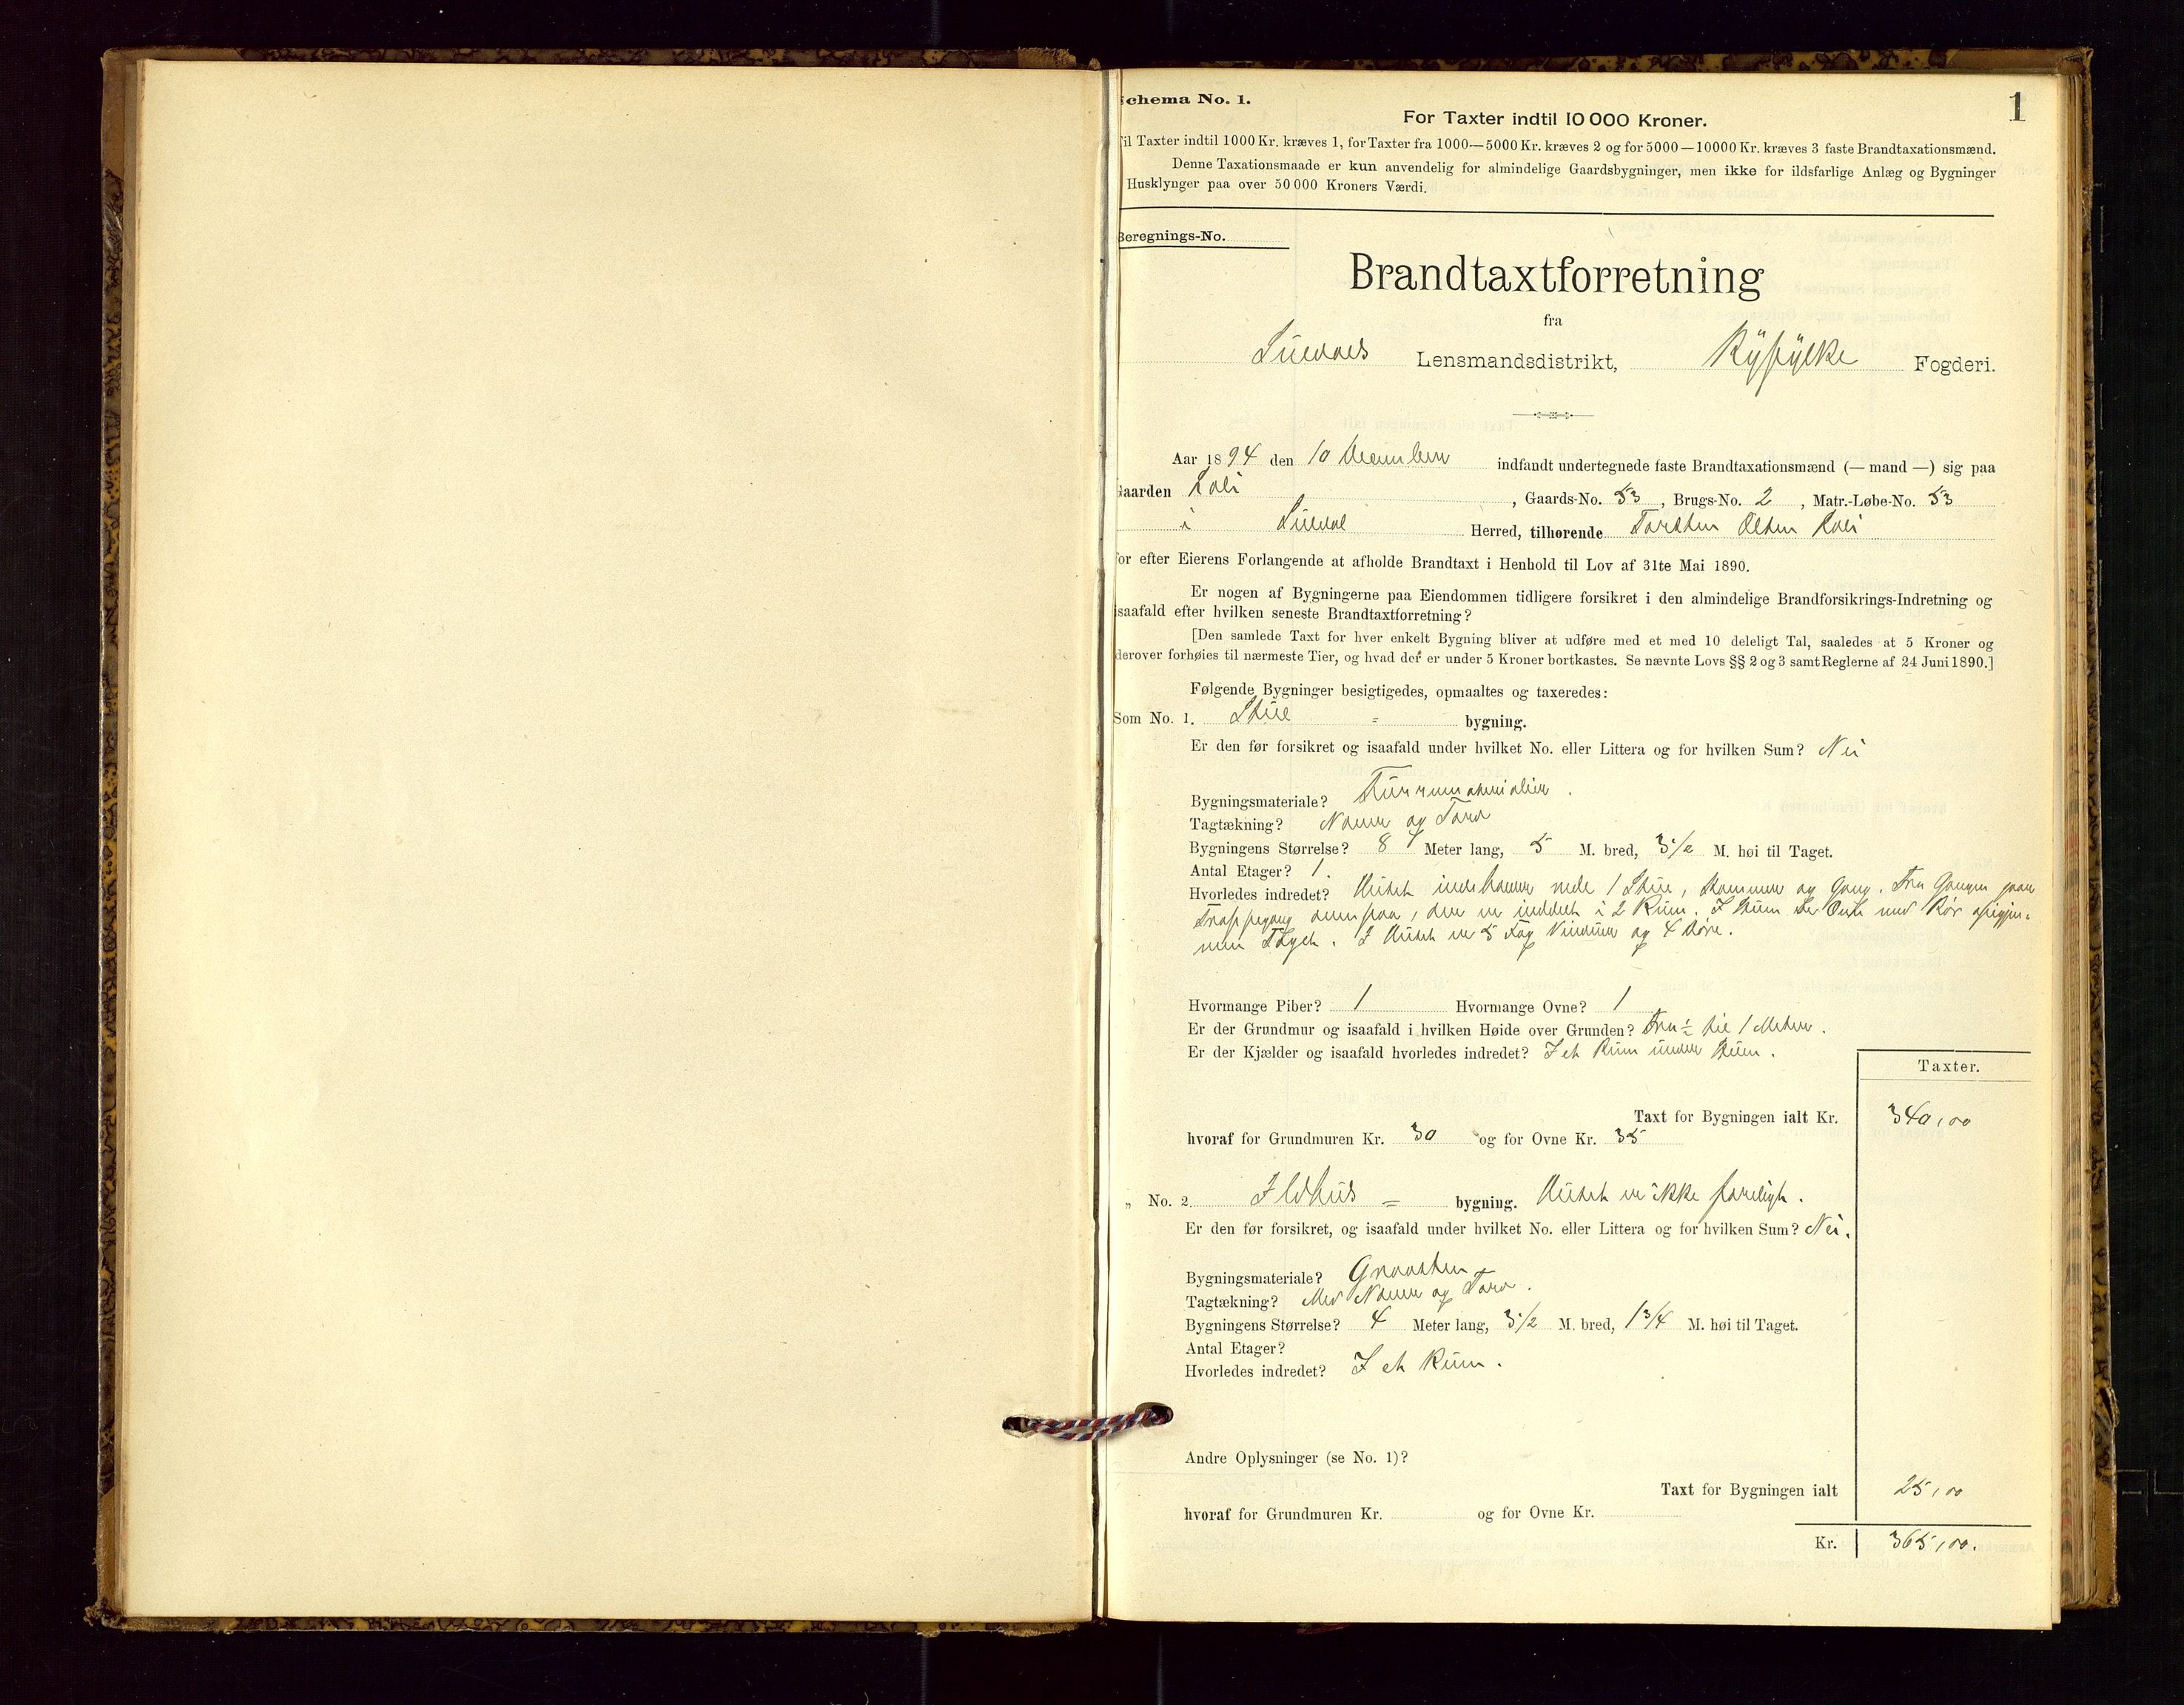 1
Schema No. 1.
For Taxter indtil 10 000 Kroner.
Til Taxter indtil 1000 Kr. kræves 1, for Taxter fra 1000—5000 Kr. kræves 2 og for 5000—10000 Kr. kræves 3 faste Brandtaxationsmænd.
Denne Taxationsmaade er kun anvendelig for almindelige Gaardsbygninger, men ikke for ildsfarlige Anlæg og Bygninger
Husklynger paa over 50 000 Kroners Værdi.
Beregnings-No.
Brandtaxtforretning
fra
Suldals Lensmandsdistrikt, Ryfylke Fogderi.
Aar 1894 den 10 December indfandt undertegnede faste Brandtaxationsmænd (— mand —) sig paa
Gaarden Loli, Gaards-No. 53, Brugs-No. 2, Matr.-Løbe-No. 53
i Suldal Herred, tilhørende Torsten Olsen Loli
for efter Eierens Forlangende at afholde Brandtaxt i Henhold til Lov af 31te Mai 1890.
Er nogen af Bygningerne paa Eiendommen tidligere forsikret i den almindelige Brandforsikrings-Indretning og
isaafald efter hvilken seneste Brandtaxtforretning?
[Den samlede Taxt for hver enkelt Bygning bliver at udføre med et med 10 deleligt Tal, saaledes at 5 Kroner og
derover forhøies til nærmeste Tier, og hvad der er under 5 Kroner bortkastes. Se nævnte Lovs §§ 2 og 3 samt Reglerne af 24 Juni 1890.]
Følgende Bygninger besigtigedes, opmaaltes og taxeredes:
Som No. 1. Stue = bygning.
Er den før forsikret og isaafald under hvilket No. eller Littera og for hvilken Sum? Nei
Bygningsmateriale? Furrumaterialier.
Tagtækning? Næver og Torv
Bygningens Størrelse? 8 Meter lang, 5 M. bred, 3 1/2 M. høi til Taget.
Antal Etager? 1.
Hvorledes indredet? Huset indehaver nede 1 Stue, Kammer og Gang. Fra Gangen gaar
Trappegang ovenpaa, der er inddelt i 2 Rum. I Stuen er Ovn med Rør
I Huset er 5 Fag Vinduer og 4 Døre.
Hvormange Piber? 1 Hvormange Ovne? 1
Er der Grundmur og isaafald i hvilken Høide over Grunden? Fra 1/2 til 1 Meter.
Er der Kjælder og isaafald hvorledes indredet? I et Rum under Stuen.
Taxter.
Taxt for Bygningen ialt Kr. 340,00
hvoraf for Grundmuren Kr. 30 og for Ovne Kr. 35
„ No. 2. Ildhus = bygning. Huset er ikke farligt.
Er den før forsikret, og isaafald under hvilket No. eller Littera og for hvilken Sum? Nei.
Bygningsmateriale? Graasten
Tagtækning? Med Næver og Torv.
Bygningens Størrelse? 4 Meter lang, 3 1/2 M. bred, 1 3/4 M. høi til Taget.
Antal Etager?
Hvorledes indredet? I et Rum.
Andre Oplysninger (se No. 1)?
Taxt for Bygningen ialt 25,00
hvoraf for Grundmuren Kr. og for Ovne Kr.
Kr. 365,00.